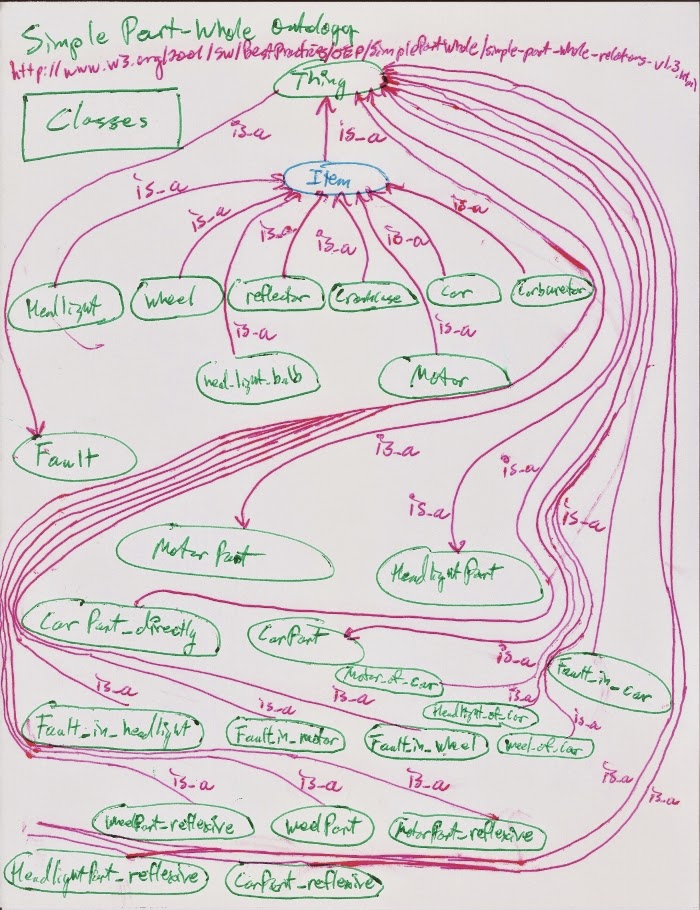 Simple Part-Whole Ontology
http://www.w3.org/2001/sw/BestPractices/OEP/SimplePartWhole/simple-part-whole-relations-v1.3.html
Thing
Classes
is-a
is-a
Item
is-a
is-a
is-a
is-a
is-a
is-a
Headlight
wheel
reflector
Crankcase
Car
Carburetor
is-a
is-a
head_light_bulb
Motor
Fault
is-a
is-a
is-a
is-a
Motor Part
HeadlightPart
Car Part_directly
CarPart
is-a
Motor_of_car
Fault_in_car
is-a
is-a
is-a
Headlight_of_car
Fault_in_headlight
is-a
Fault_in_motor
Fault_in_wheel
is-a
weel_of_car
is-a
is-a
is-a
is-a
is-a
weelPart_reflexive
weelPart
MotorPart_reflexive
HeadlightPart_reflexive
CarPart_reflexive